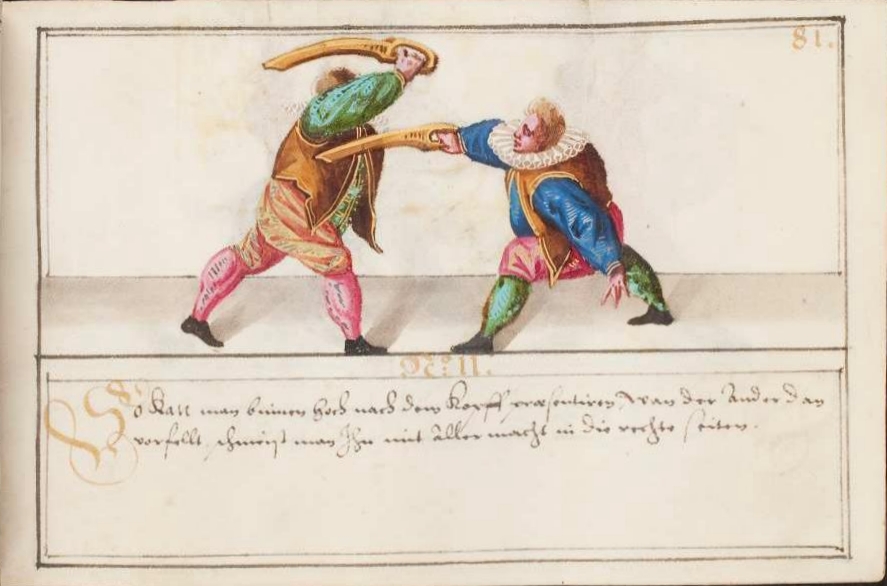 81.
No 11.
So kan man binnen hoch nach dem Kopff præsentiren, wan der Ander dan
vorfellt, schmeist man Ihn mit aller macht in die rechte seiten.